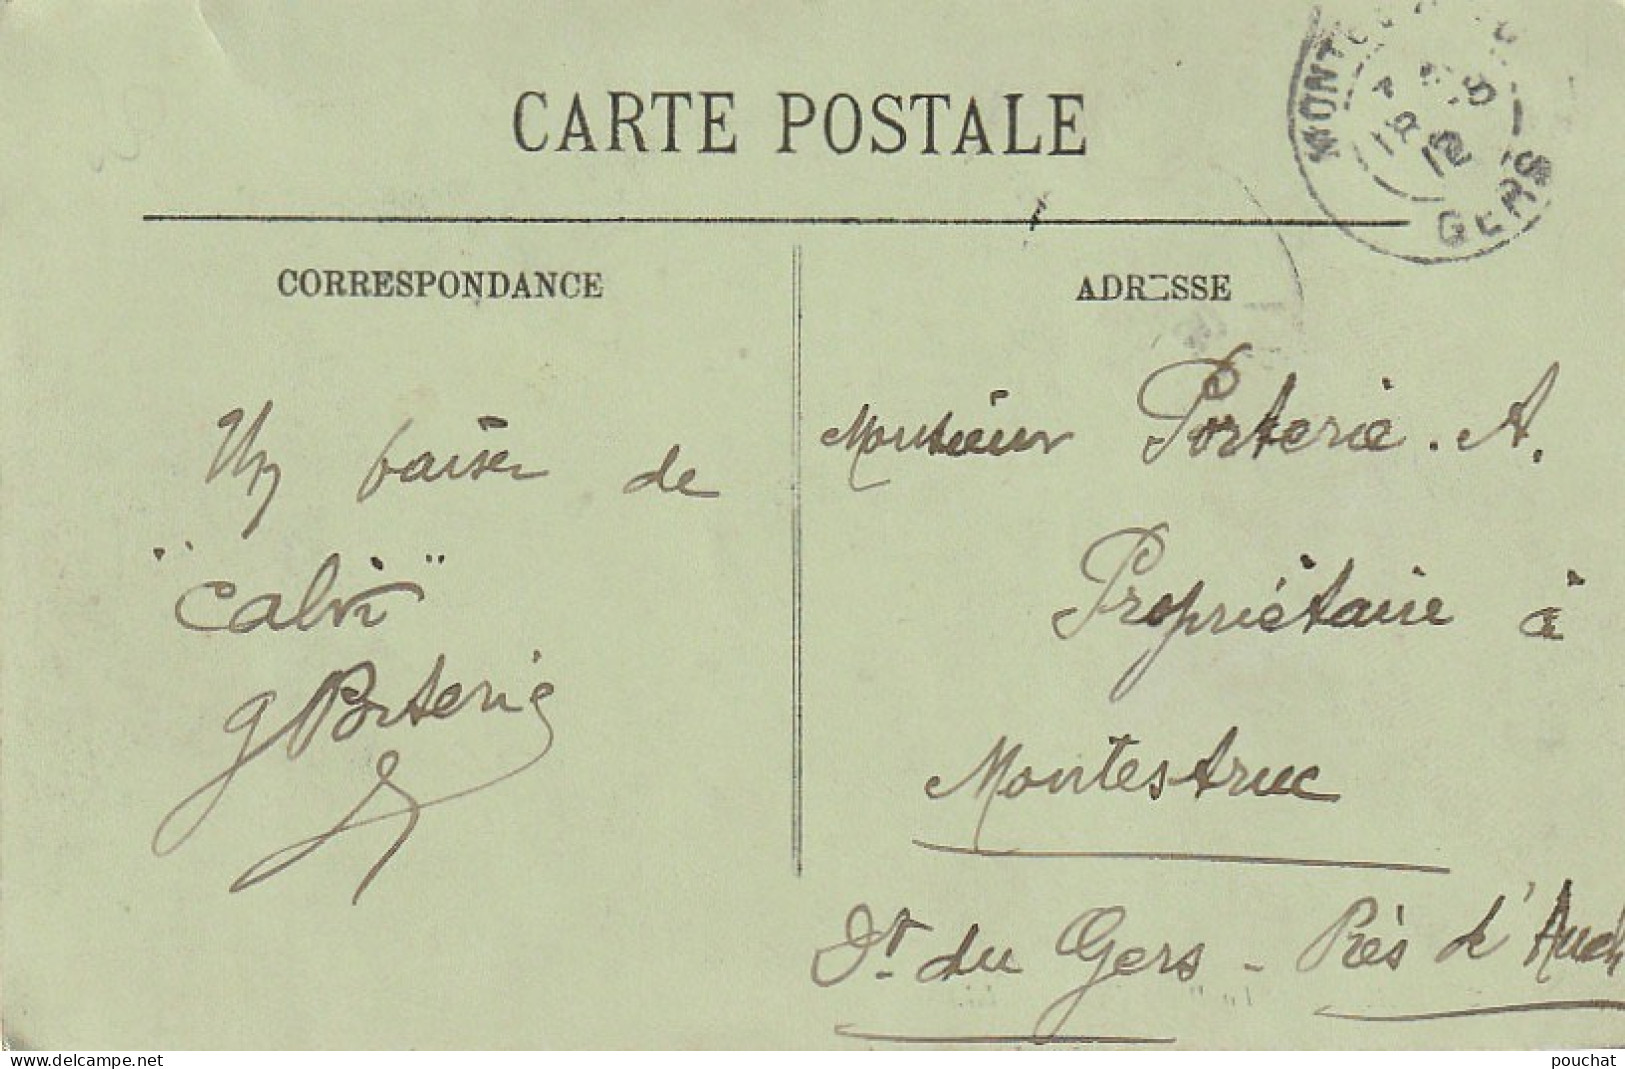 CARTE POSTALE
CORRESPONDANCE
Un baiser de
"Calvi"
G Porterie
ADRESSE
Monsieur Porterie. A.
Propriétaire à
Montestruc
Dt. du Gers - Près d'Auch
GERS
pouchat